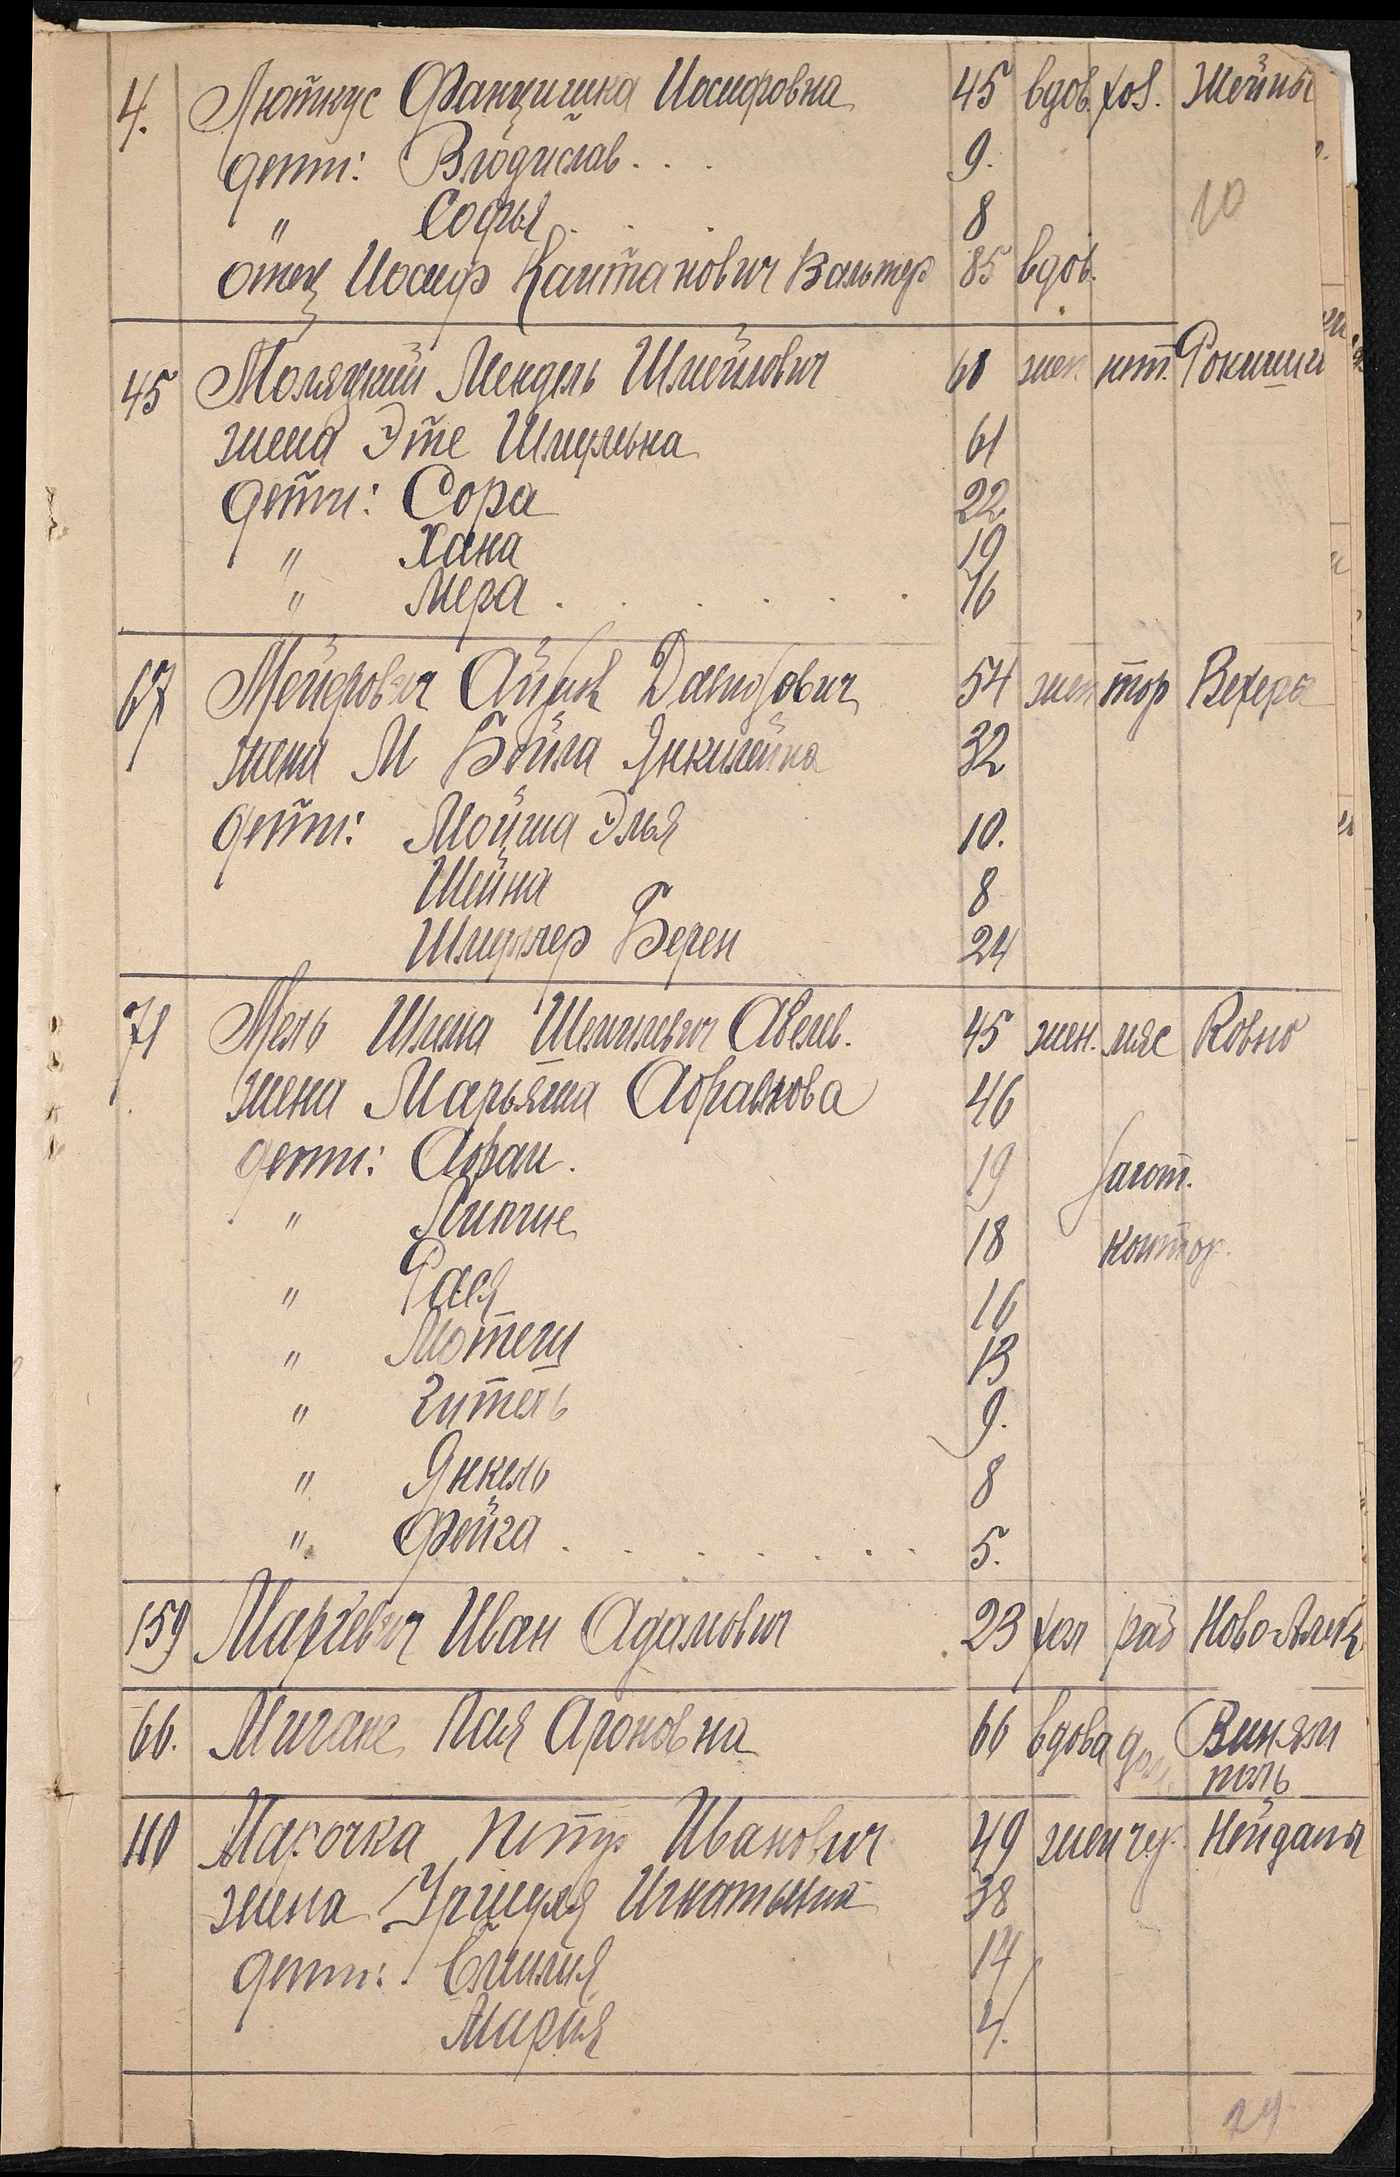 4. Люткус Фанцишка Иосифовна 45 вдов. хоз. Жеймы
дети: Владислав . . . 9.
" Софья . . 8
10
отец Иосиф Каитанович Вальтер 85 вдов.
45 Моляцкий Мендель Шмейлович 68 жен. Рокишки
жена Эте Шмульна 61
дети: Сора 22
" Хана 19
" Мера . . . . . . 16
67 Мейерович Айзик Давидович 54 жен тор
жена М Бейла Янкилевна 32
дети: Мойша Элья 10.
Шейна 8
Берен 24
71 Мель Шлема Авелев. 45 жен. мяс Ковно
жена Марьяша Абрамова 46
дети: Абрам. 19 загот.
" 18 контор.
" Рася 16
" 13
" 9.
" Янкель 8
" Фейга . . . . . . 5.
159 Маркевич Иван Адамович 23 хол раб Ново-Алекс
66. Пая Ароновна 66 вдова дом.
поль
110 Марочка Петр Иванович 49 жен Кейданы
жена Уршуля Игнатьевна 38
дети: Эмилия 14
Мария 4.
24